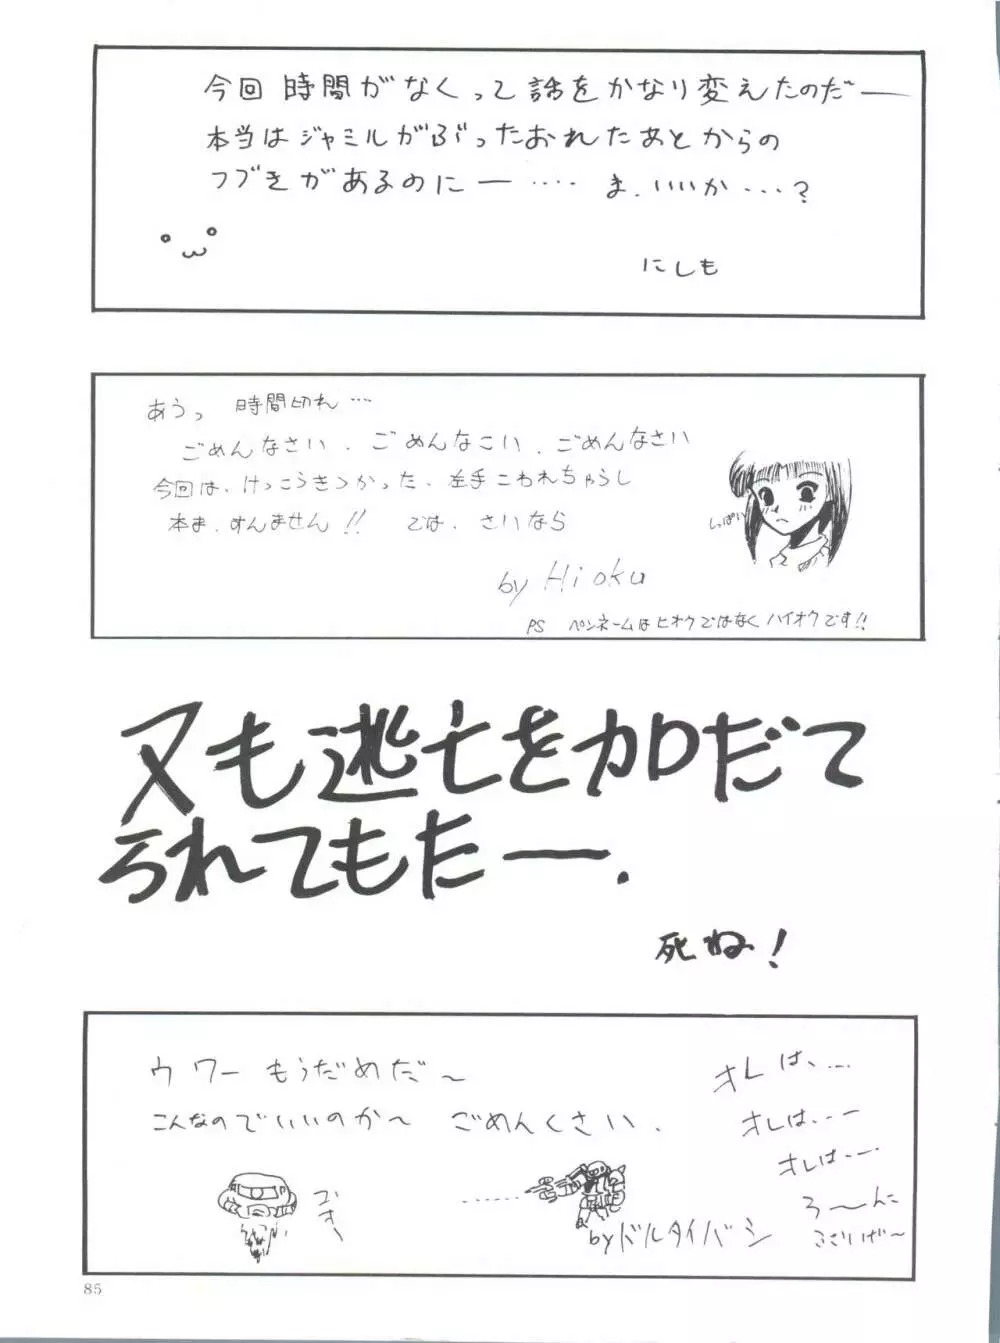 今回 時間がなくって話をかなり変えたのだー
本当はジャミルがぶったおれたあとからの
つづきがあるのにー‥‥ ま、いいか…?
にしも
あうっ 時間切れ…
ごめんなさい、ごめんなこい、ごめんなさい
今回は、けっこうきつかった、左手こわれちゃうし
本ま、すんません!! では、さいなら
しっぱい
by Hioku
PS ペンネームはヒオクではなくハイオクです!!
又も逃亡をカロだて
られてもたー.
死ね!
ウワー もうだめだ~
こんなのでいいのか~ ごめんくさい.
オレは、…
オレは、--
オレは--
ろ~んに
by ドルタイバシ
85